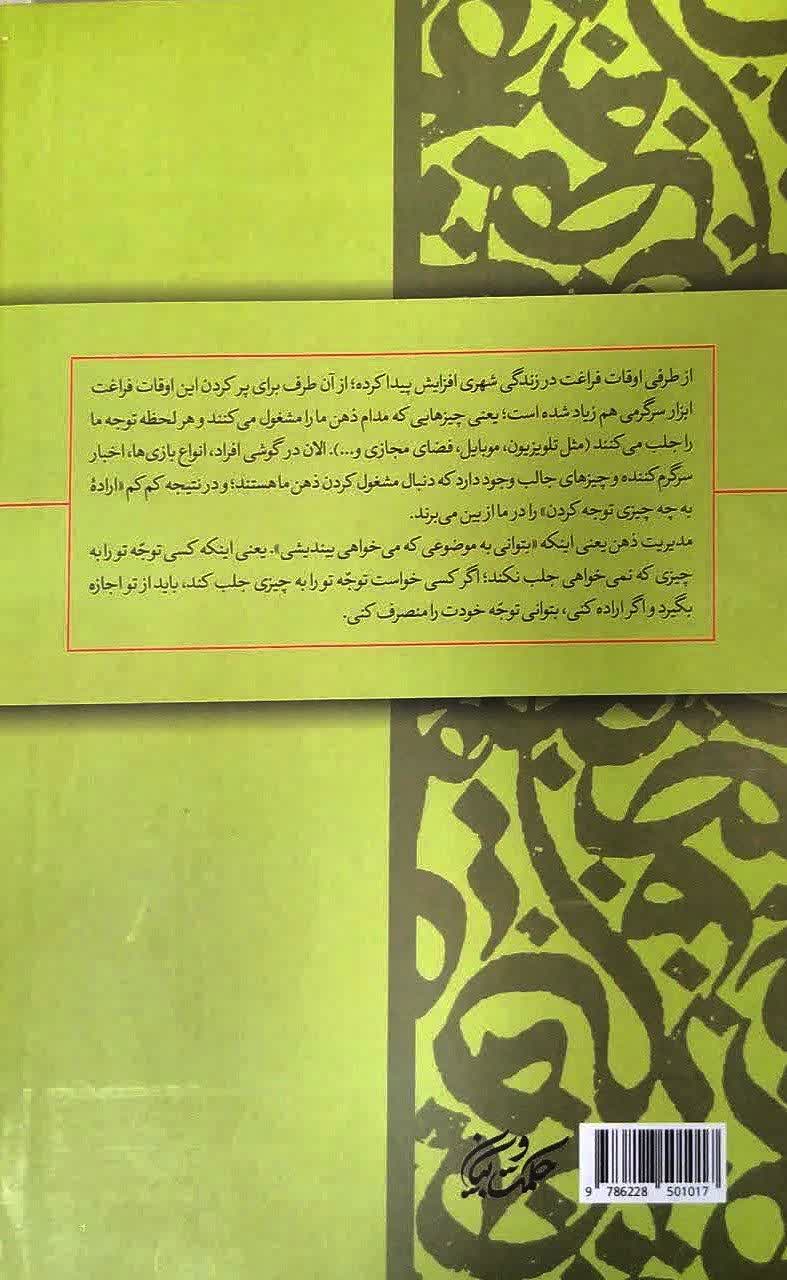 از طرفی اوقات فراغت در زندگی شهری افزایش پیدا کرده؛ از آن طرف برای پر کردن این اوقات فراغت
ابزار سرگرمی هم زیاد شده است؛ یعنی چیزهایی که مدام ذهن ما را مشغول می‌کنند و هر لحظه توجه ما
را جلب می‌کنند (مثل تلویزیون، موبایل، فضای مجازی و...). الان در گوشی افراد، انواع بازی‌ها، اخبار
سرگرم‌کننده و چیزهای جالب وجود دارد که دنبال مشغول کردن ذهن ما هستند؛ و در نتیجه کم‌کم «ارادهٔ
به چه چیزی توجه کردن» را در ما از بین می‌برند.
مدیریت ذهن یعنی اینکه «بتوانی به موضوعی که می‌خواهی بیندیشی». یعنی اینکه کسی توجّه تو را به
چیزی که نمی‌خواهی جلب نکند؛ اگر کسی خواست توجّه تو را به چیزی جلب کند، باید از تو اجازه
بگیرد و اگر اراده کنی، بتوانی توجّه خودت را منصرف کنی.
9 786228 501017